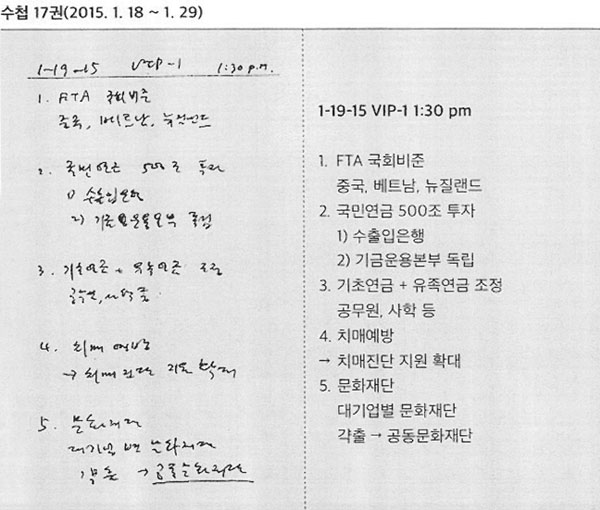 수첩 17권(2015. 1. 18 ~ 1. 29)
1-19-15 VIP-1 1:30 p.m.
1. FTA 국회비준
중국, 베트남, 뉴질랜드
2. 국민연금 500조 투자
1) 수출입은행
2) 기금운용본부 독립
3. 기초연금 + 유족연금 조정
공무원, 사학 등
4. 치매예방
→ 치매진단 지원 확대
5. 문화재단
대기업별 문화재단
갹출 → 공동문화재단
1-19-15 VIP-1 1:30 pm
1. FTA 국회비준
중국, 베트남, 뉴질랜드
2. 국민연금 500조 투자
1) 수출입은행
2) 기금운용본부 독립
3. 기초연금 + 유족연금 조정
공무원, 사학 등
4. 치매예방
→ 치매진단 지원 확대
5. 문화재단
대기업별 문화재단
갹출 → 공동문화재단